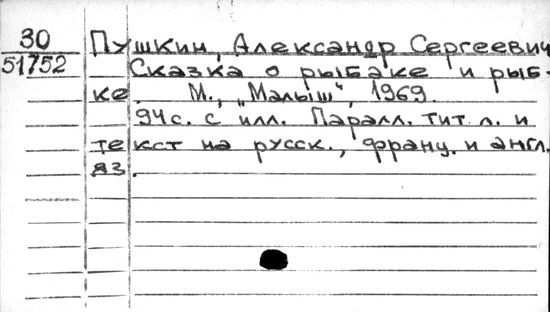 30 Пушкин, Александр Сергеевич
51752 Сказка о рыбаке и рыб-
ке. М., „Малыш", 1969.
94с. с илл. Паралл. тит. л. и
текст на русск., франц. и англ.
яз.